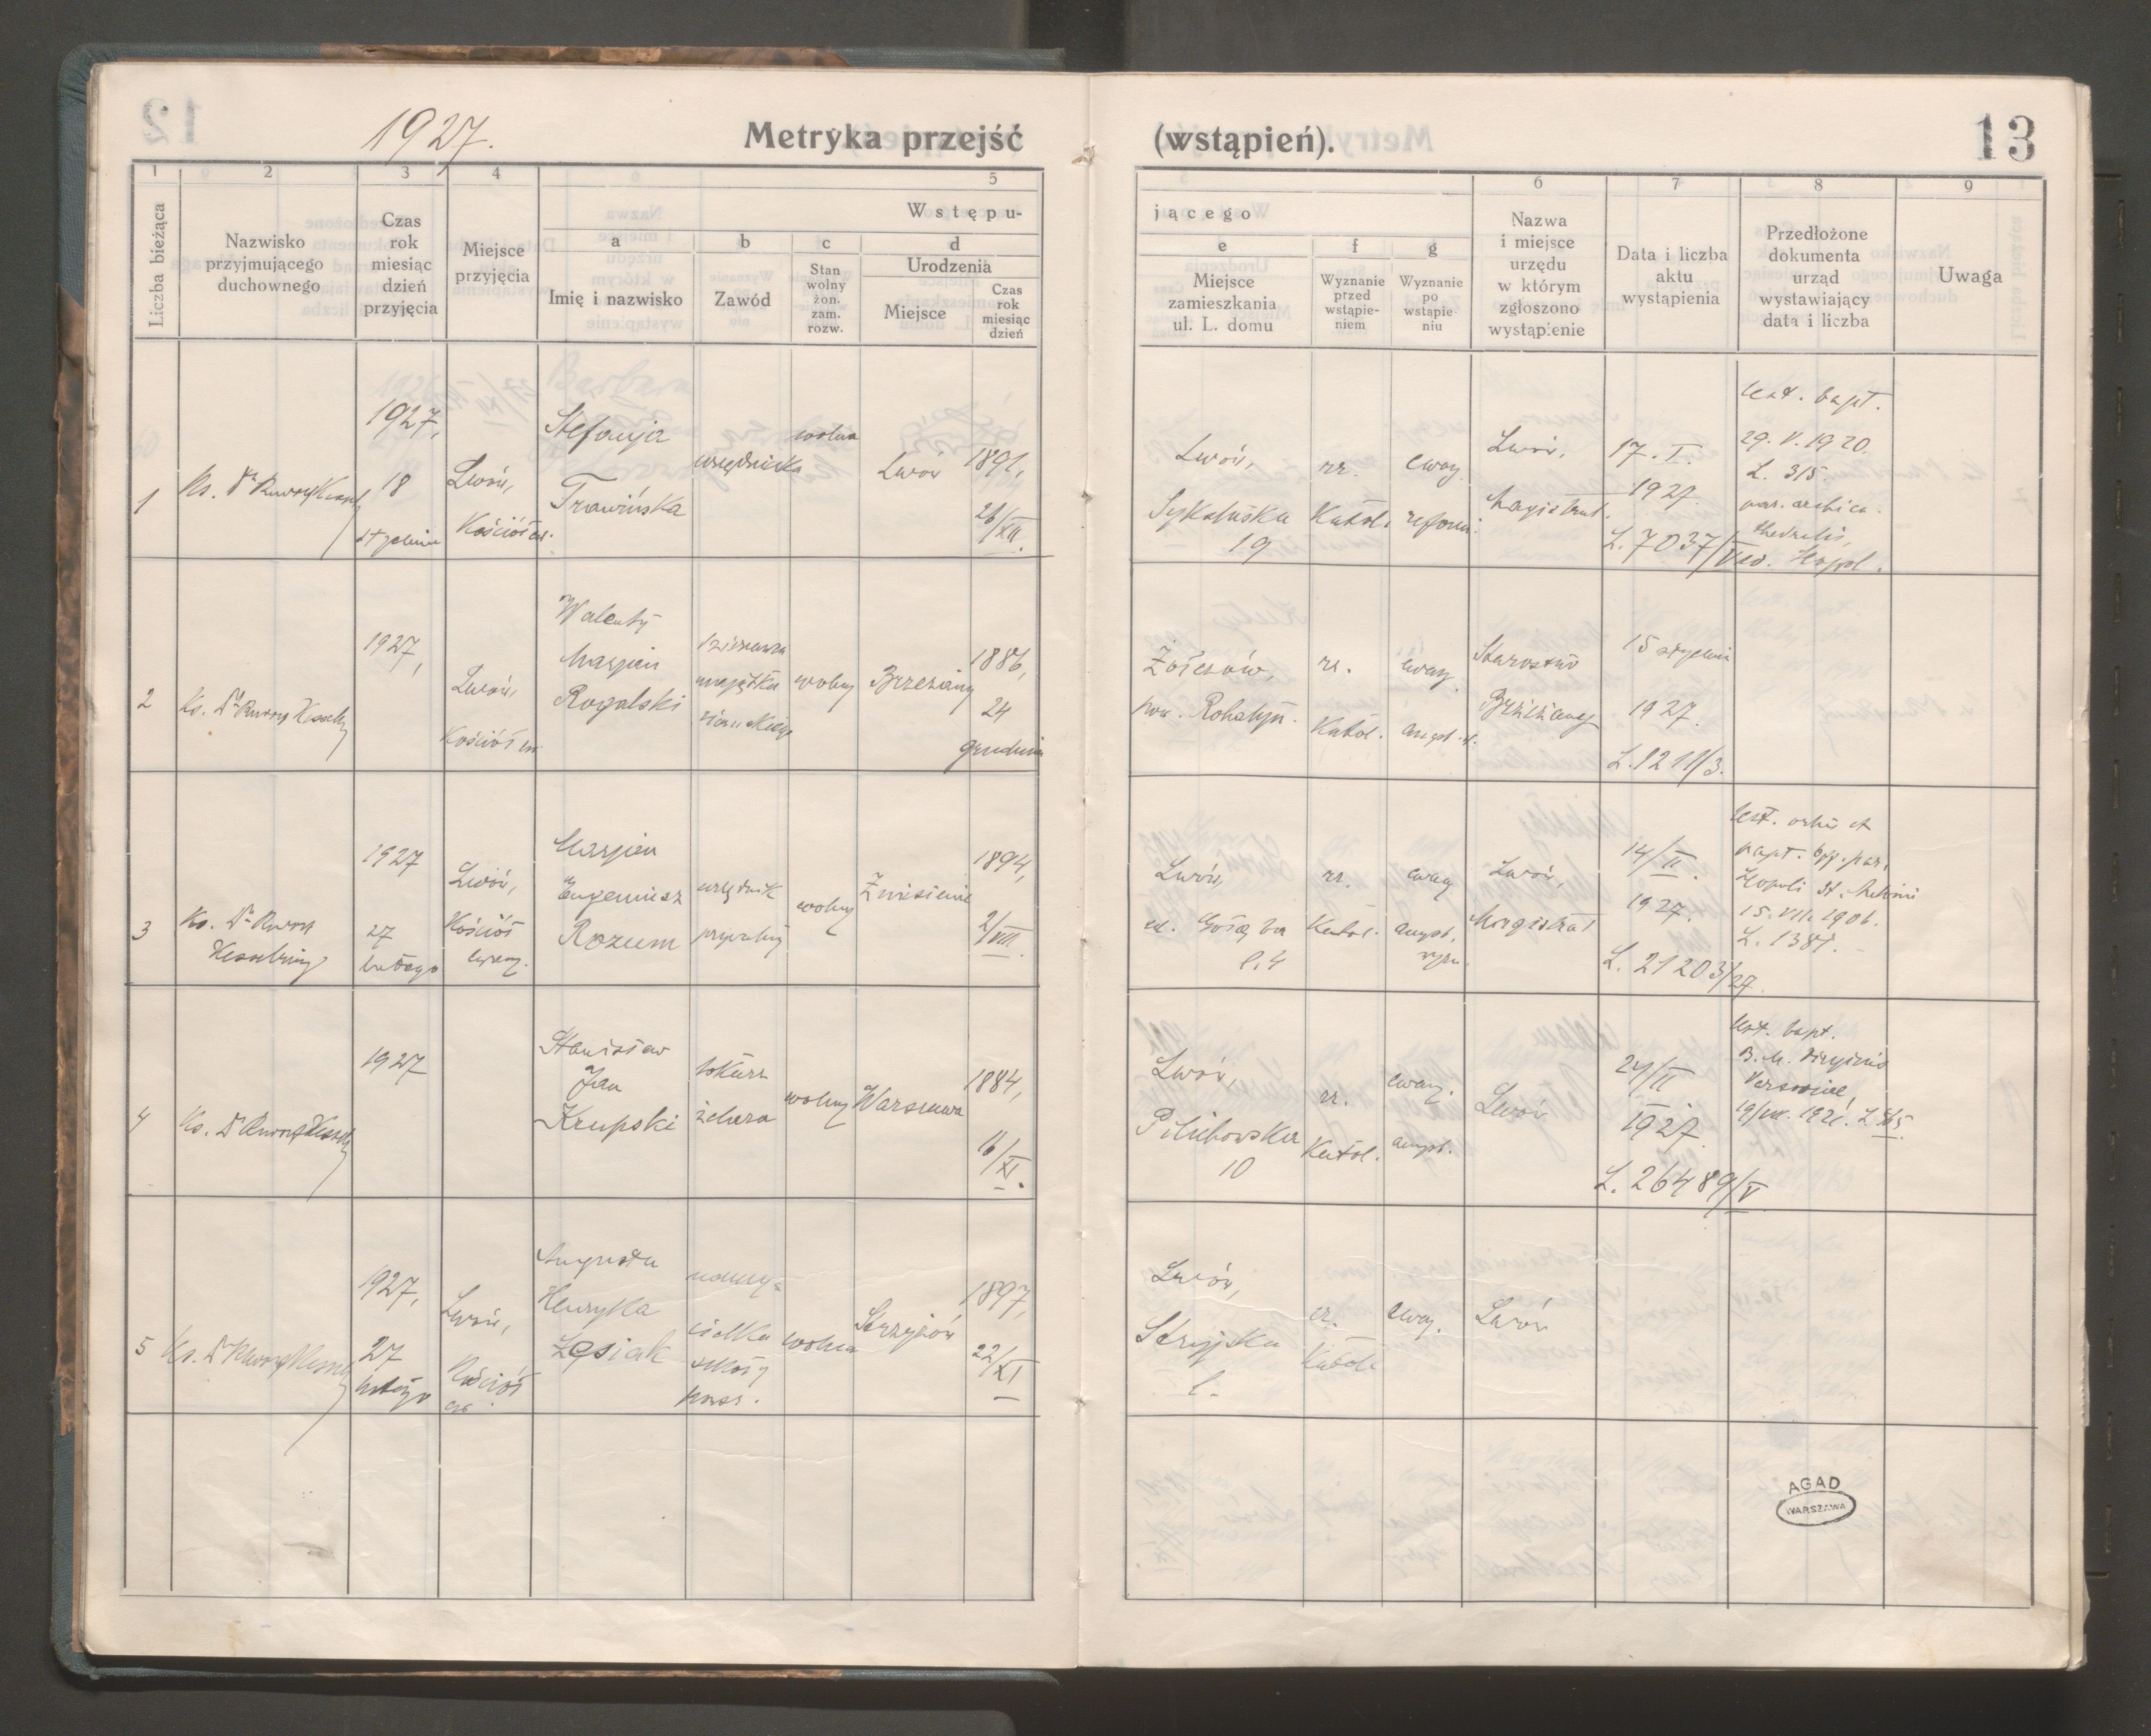 1927.
Metryka przejść (wstąpień).
13
1 2 3 4 5 6 7 8 9
Liczba bieżąca
Nazwisko
przyjmującego
duchownego
Czas
rok
miesiąc
dzień
przyjęcia
Miejsce
przyjęcia
Wstępu-
jącego
a
Imię i nazwisko
b
Zawód
c
Stan
wolny
żon.
zam.
rozw.
d
Urodzenia
Miejsce
Czas
rok
miesiąc
dzień
e
Miejsce
zamieszkania
ul. L. domu
f
Wyznanie
przed
wstąpie-
niem
g
Wyznanie
po
wstąpie
niu
Nazwa
i miejsce
urzędu
w którym
zgłoszono
wystąpienie
Data i liczba
aktu
wystąpienia
Przedłożone
dokumenta
urząd
wystawiający
data i liczba
Uwaga
1
Ks. Dr
1927,
18
stycznia
Lwów,
Kościół
Stefanja
Trawińska
urzędniczka
wolna
Lwów
1891,
26/XII.
Lwów,
19
rz.
Katol.
ewag.
reform.
Lwów,
Magistrat.
17. I.
1927.
L. 7037/V
Cert. bapt.
29. V. 1920.
L. 315.
2
Ks. Dr
1927,
Lwów,
Kościół
Walenty
Marjan
Rogalski
dzierżawca
majątku
wolny
Brzeżany
1886,
24
grudnia
Żołczów,
pow. Rohatyn.
rz.
Katol.
ewag.
augsb.
Starostwo
Brzeżany
15 stycznia
1927.
L. 1211/3.
3
Ks. Dr
Kesselring
1927
27
lutego
Lwów,
Kościół
ewang.
Marjan
Eugeniusz
Rozum
urzędnik
prywatny
wolny
Zniesienie
1894,
2/VIII.
Lwów,
ul. Gołąba
l. 4
rz.
Katol.
ewag
augsb.
wyzn.
Lwów,
Magistrat
14/II.
1927.
L. 21203/27.
Cert. ortus et
bapt. off. par.
Leopoli St. Antonii
15. VII. 1906.
L. 1387.
4
Ks. Dr
1927
Stanisław
Jan
Krupski
tokarz
żelaza
wolny
Warszawa
1884,
16/XI.
Lwów,
Pilichowska
10
rz.
Katol.
ewag.
augsb.
Lwów
24/II
1927.
L. 26489/V
Cert. bapt.
B. M. Virginis
Varsoviae,
19/VII. 1921.
5
Ks. Dr
1927,
27
lutego
Lwów,
Kościół
Augusta
Henryka
Łęsiak
nauczy-
cielka
szkoły
powsz.
wolna
Strzyżów
1897,
22/XI
Lwów,
Stryjska
l.
rz.
Katol.
ewag.
Lwów
AGAD
WARSZAWA